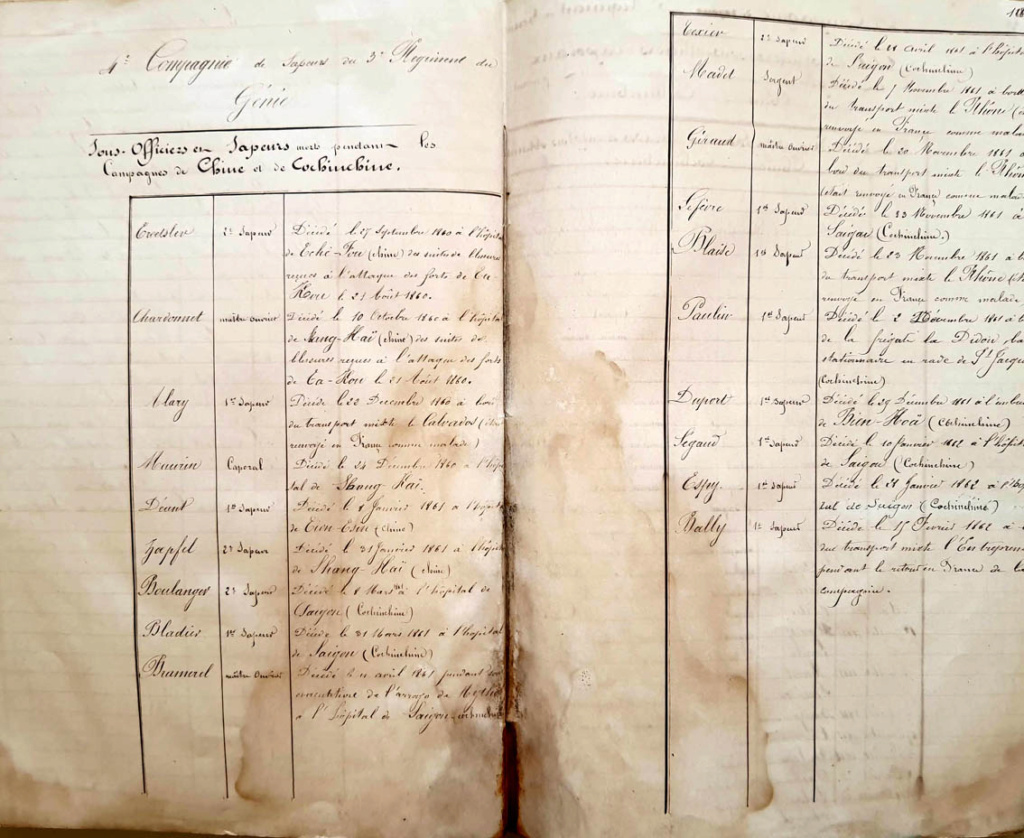 4e Compagnie de Sapeurs du 3e Régiment du
Génie
Sous-Officiers et Sapeurs morts pendant les
Campagnes de Chine et de Cochinchine.
2e Sapeur Décédé le 27 Septembre 1860 à l'hôpital
de Tché-Fou (Chine) des suites de blessures
reçues à l'attaque des forts de Ta-
Kou le 21 Août 1860.
Chardonnet maître ouvrier Décédé le 10 Octobre 1860 à l'hôpital
de Shang-Haï (Chine) des suites de
blessures reçues à l'attaque des forts
de Ta-Kou le 21 Août 1860.
Alary 1er Sapeur Décédé le 22 Décembre 1860 à bord
du transport mixte le Calvados (était
renvoyé en France comme malade)
Maurin Caporal Décédé le 24 Décembre 1860 à l'hôpi-
tal de Shang Haï.
1er Sapeur Décédé le 8 Janvier 1861 à l'hôpital
de Tien-Tsin (Chine)
Zapfel 2e Sapeur Décédé le 31 Janvier 1861 à l'hôpital
de Shang-Haï (Chine)
Boulanger 2e Sapeur Décédé le 8 Mars à l'hôpital de
Saïgon (Cochinchine)
Bladier 1er Sapeur Décédé le 31 Mars 1861 à l'hôpital
de Saïgon (Cochinchine)
Bramerel maître ouvrier Décédé le 11 avril 1861 pendant
de l'arroyo de Mytho
à l'hôpital de Saïgon Cochinchine
108
Texier 2e Sapeur Décédé le 21 avril 1861 à l'hôpital
de Saïgon (Cochinchine)
Madet Sergent Décédé le 1 Novembre 1861 à bord
du transport mixte le Rhône
renvoyé en France comme malade
Giraud maître ouvrier Décédé le 20 Novembre 1861 à
bord du transport mixte le Rhône
(était renvoyé en France comme malade
Lefèvre 1er Sapeur Décédé le 23 Novembre 1861 à
Saïgon (Cochinchine.)
Blaise 1er Sapeur Décédé le 23 Novembre 1861 à
du transport mixte le Rhône
renvoyé en France comme malade
Paulin 1er Sapeur Décédé le 2 Décembre 1861 à
de la frégate la Didon
stationnaire en rade de St Jacques
(Cochinchine)
Duport 1er Sapeur Décédé le 29 Décembre 1861 à
de Bien-Hoä (Cochinchine)
Segaud 1er Sapeur Décédé le 10 Janvier 1862 à l'hôpital
de Saïgon (Cochinchine)
Espy 1er Sapeur Décédé le 21 Janvier 1862 à l'hôpi-
tal de Saïgon (Cochinchine)
Bally 1er Sapeur Décédé le 15 Février 1862 à
du transport mixte l'Entreprenante
pendant le retour en France de la
compagnie.